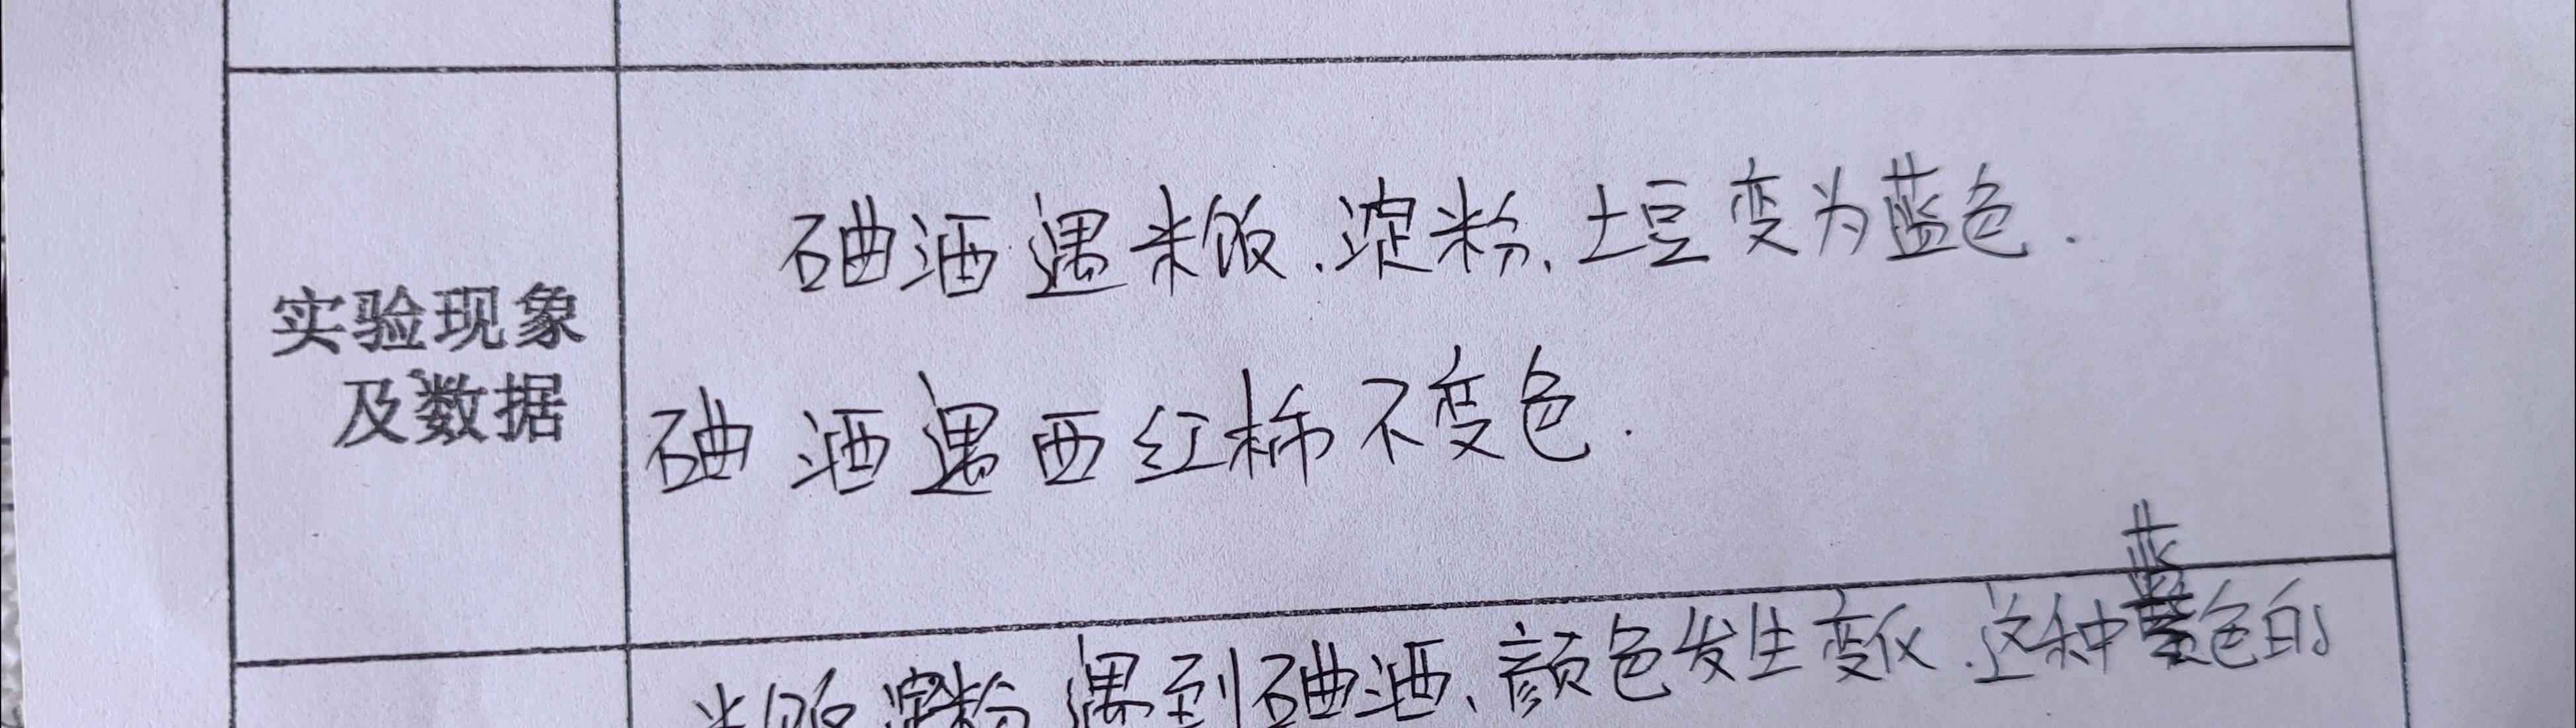 实验现象
及数据
碘酒遇米饭.淀粉、土豆变为蓝色.
碘酒遇西红柿不变色.
米饭淀粉遇到碘酒、颜色发生变化.这种蓝色的